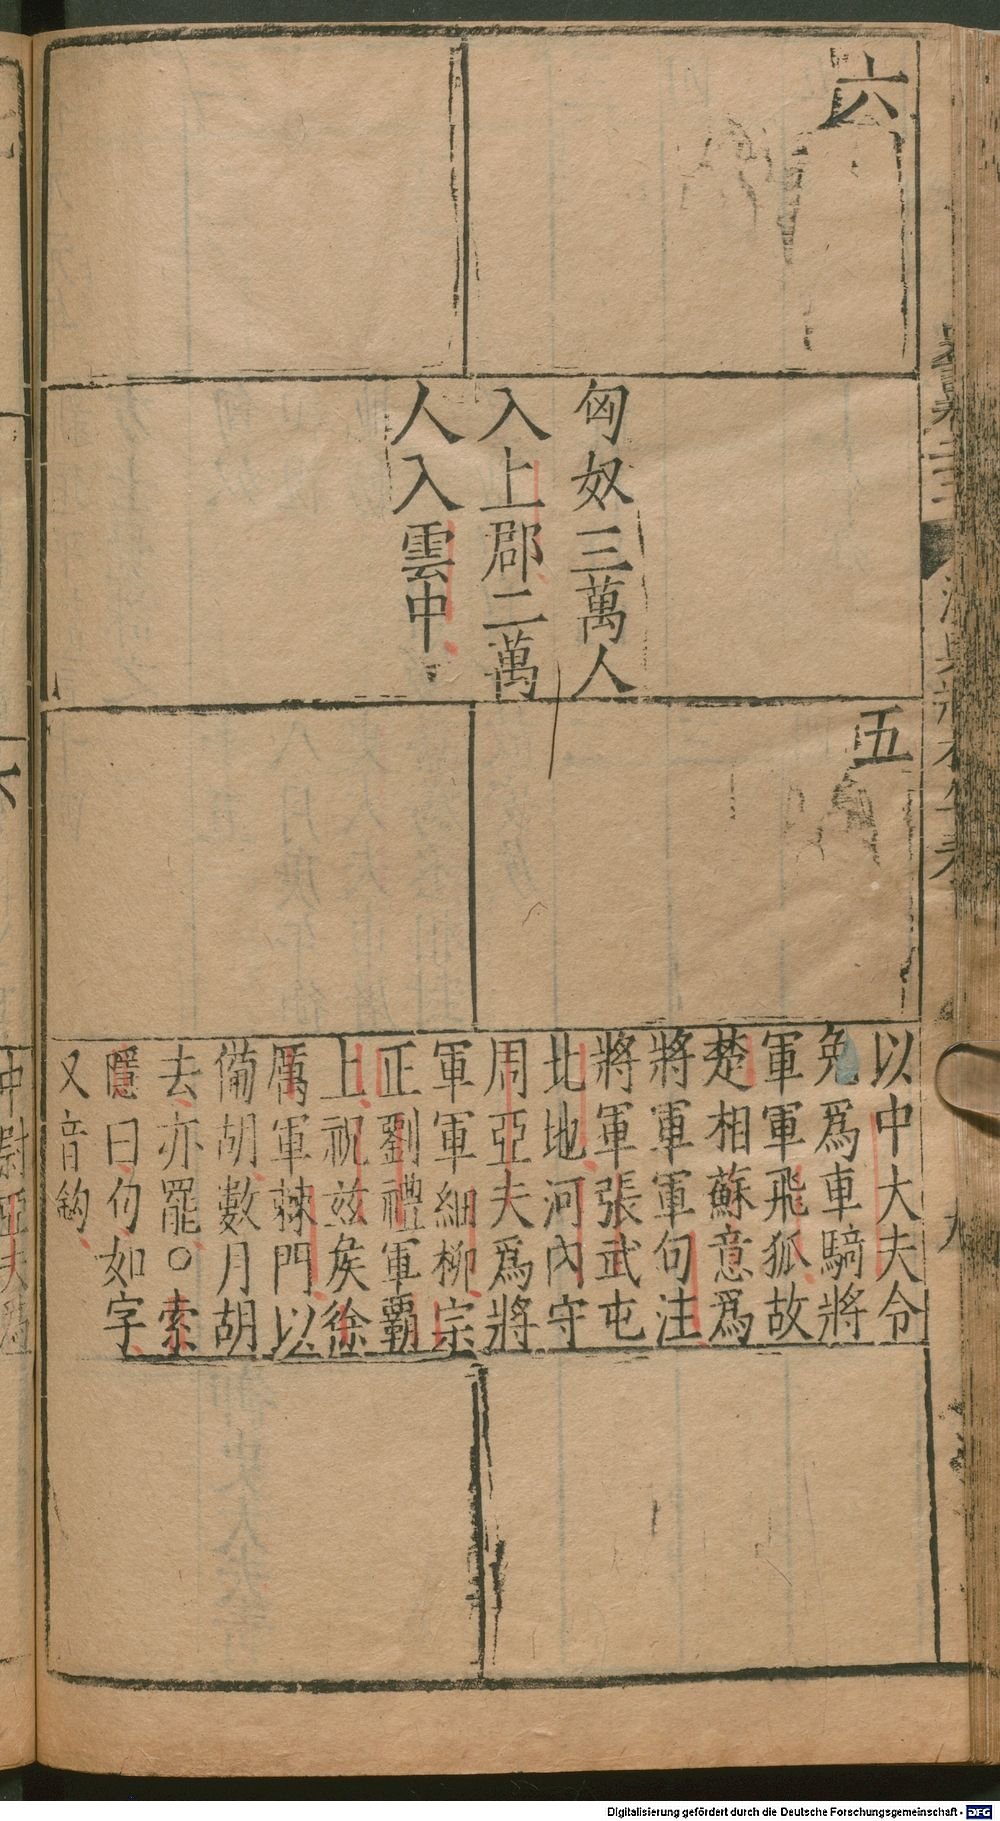 六
匈奴三萬人
入上郡二萬
人入雲中
五
以中大夫令
免爲車騎將
軍軍飛狐故
楚相蘇意爲
將軍軍句注
將軍張武屯
北地河內守
周亞夫爲將
軍軍細柳宗
正劉禮軍霸
上祝茲矦徐
厲軍棘門以
備胡數月胡
去亦罷○索
隱曰句如字
又音鉤
中尉亞夫爲
Digitalisierung gefördert durch die Deutsche Forschungsgemeinschaft - DFG